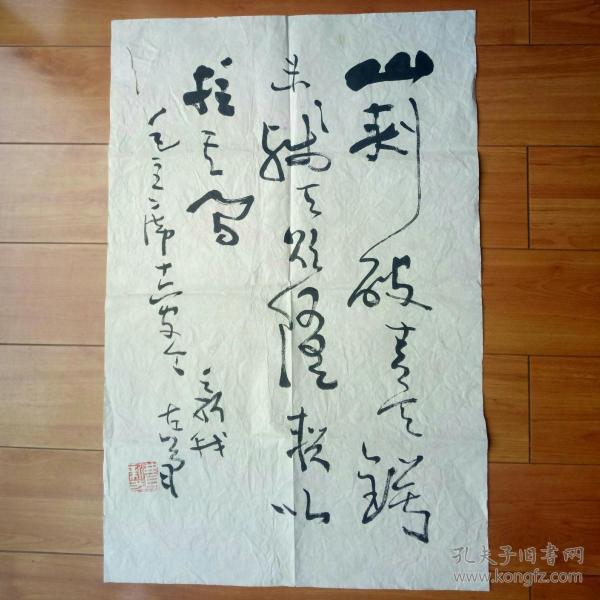 山刺破青天鍔
未殘天欲墮賴以
拄其間
毛主席十六字令
孔夫子旧书网
www.kongfz.com